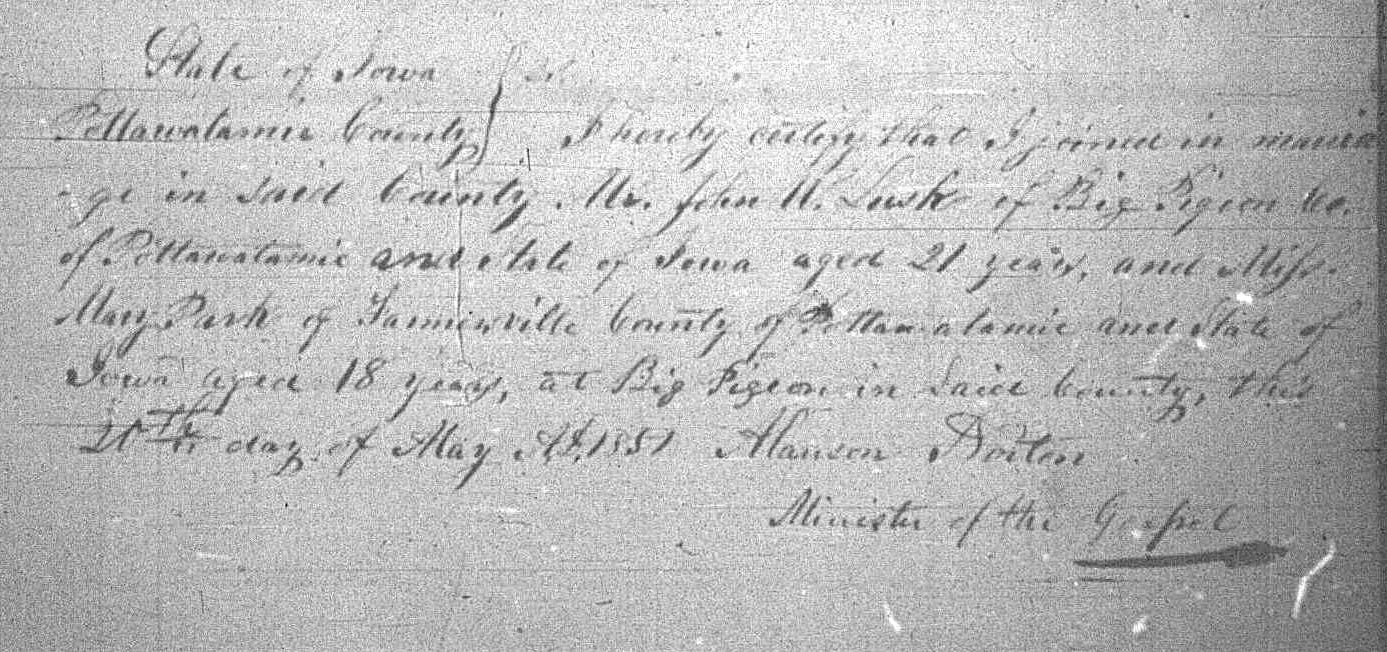 State of Iowa } ss.
Pottawatamie County } I hereby certify that I joined in marria
-ge in said County Mr. John W. Lusk of Big Pigeon Co.
of Pottawatamie and State of Iowa aged 21 years, and Miss
Mary Park of County of Pottawatamie and State of
Iowa aged 18 years, at Big Pigeon in said County, this
day of May AD. 1851 Alanson
Minister of the Gospel